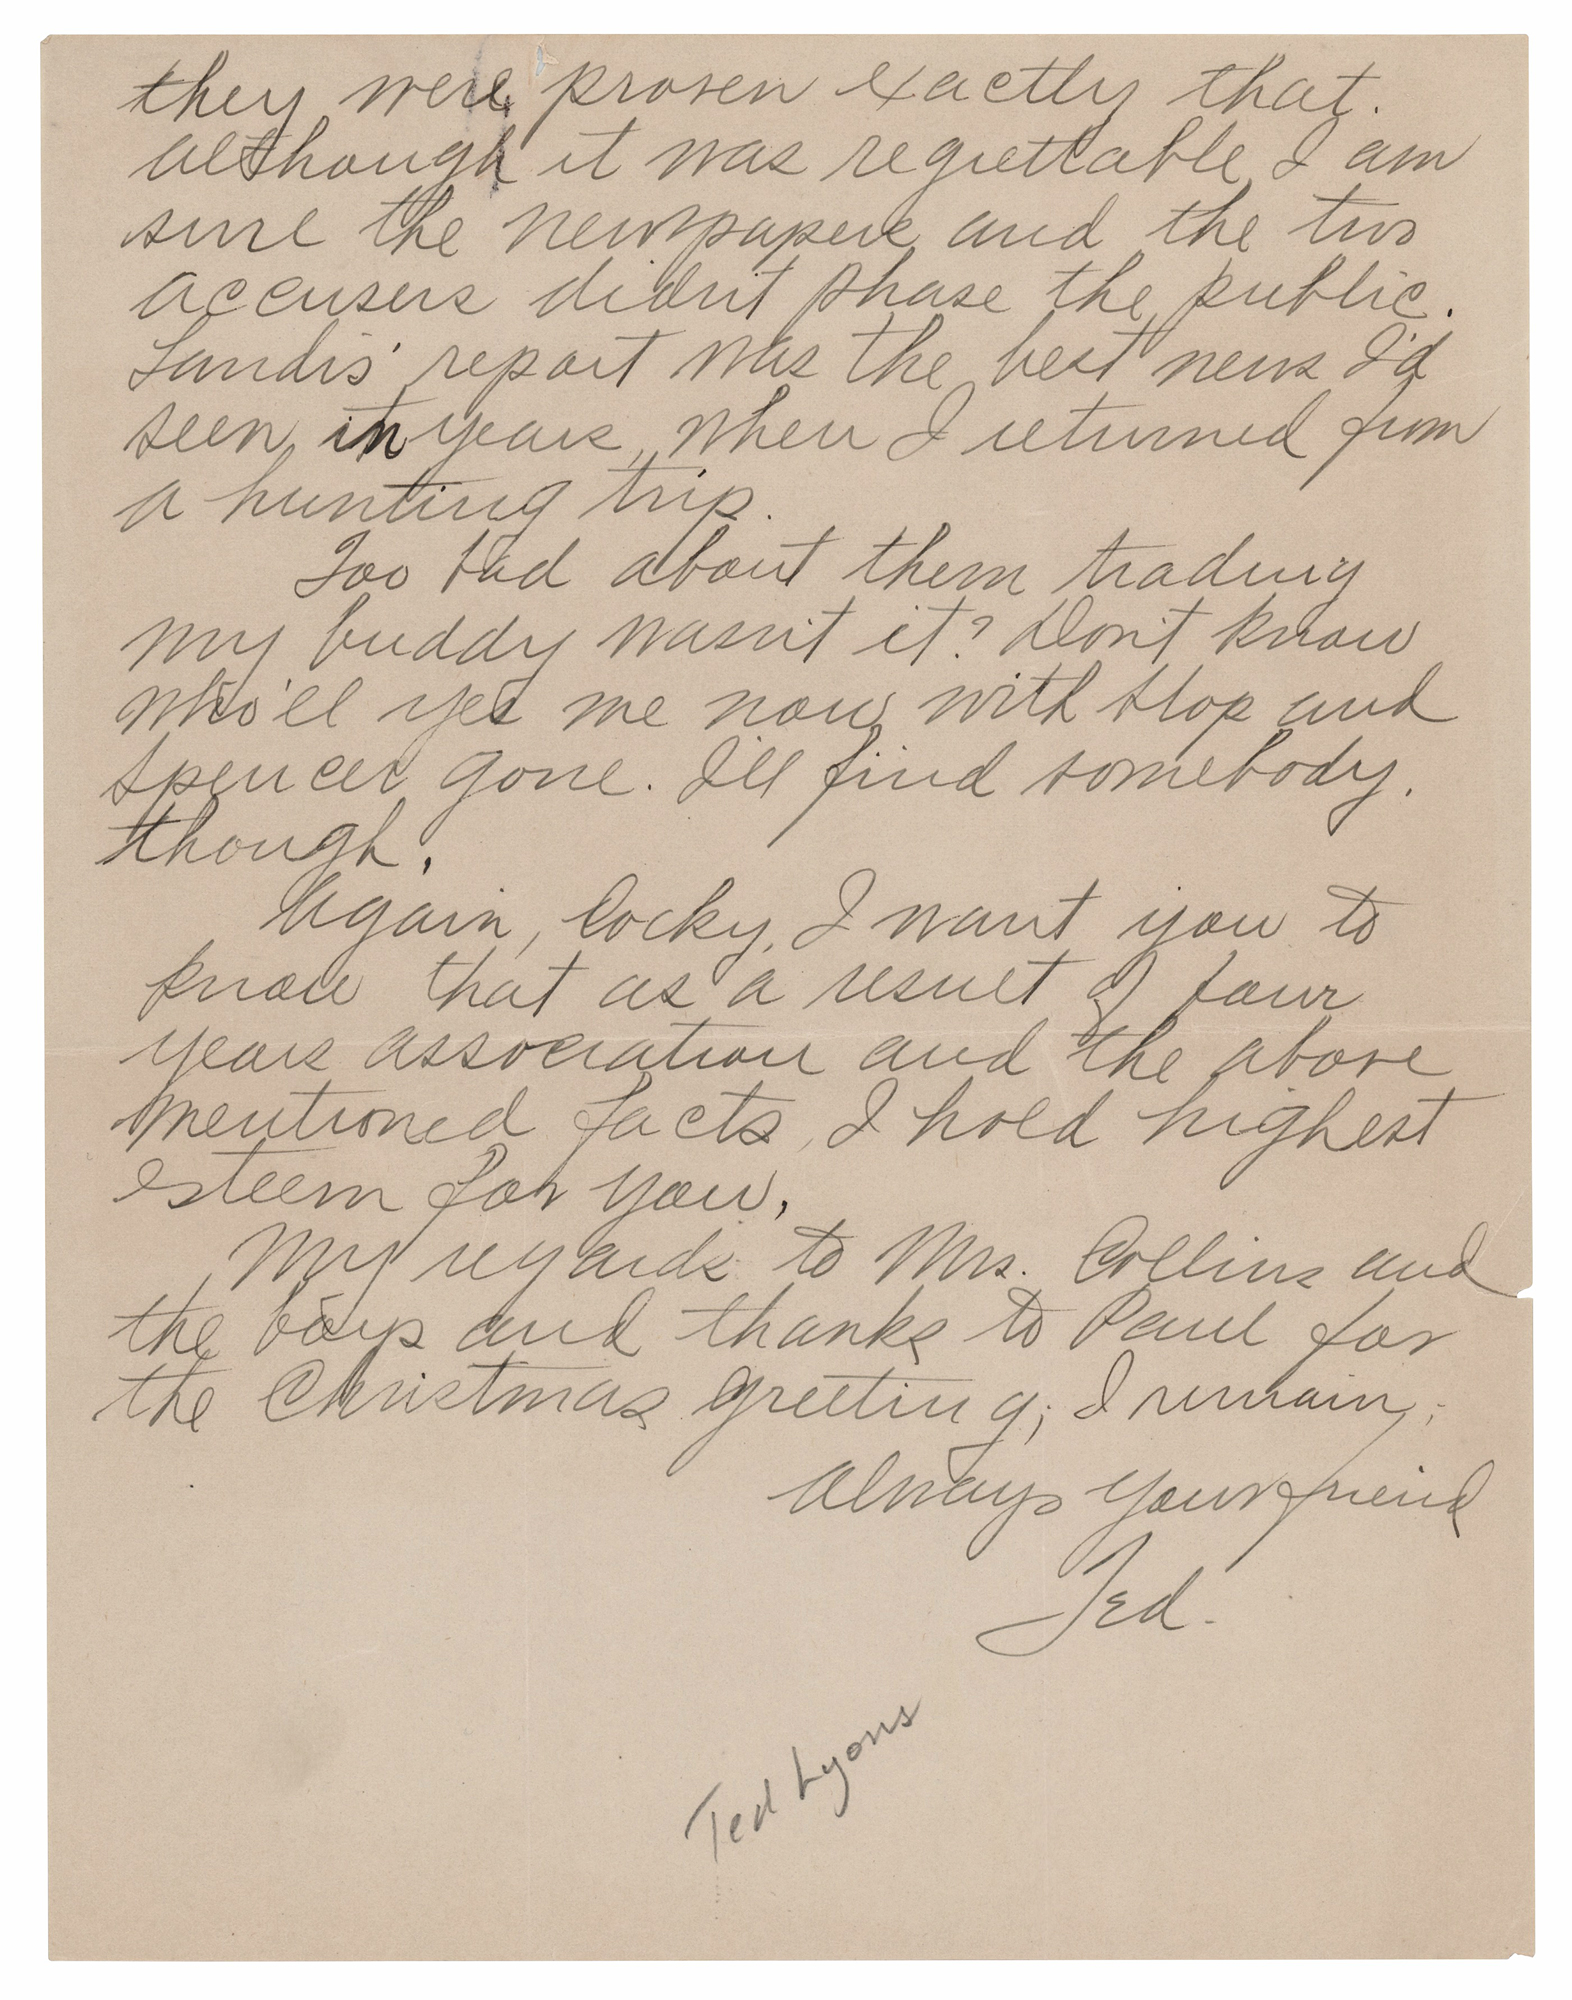 they were proven exactly that.
although it was regrettable I am
sure the newspapers and the two
accusers didn't phase the public.
Landis' report was the best news I'd
seen in years, when I returned from
a hunting trip.
Too bad about them trading
my buddy wasn't it? Don't know
who'll yes me now with Slop and
Spencer gone. I'll find somebody,
though.
Again, Cocky, I want you to
know that as a result of four
years association and the above
mentioned facts, I hold highest
esteem for you.
My regards to Mrs. Collins and
the boys and thanks to Paul for
the Christmas greeting; I remain,
Always your friend
Ted.
Ted Lyons